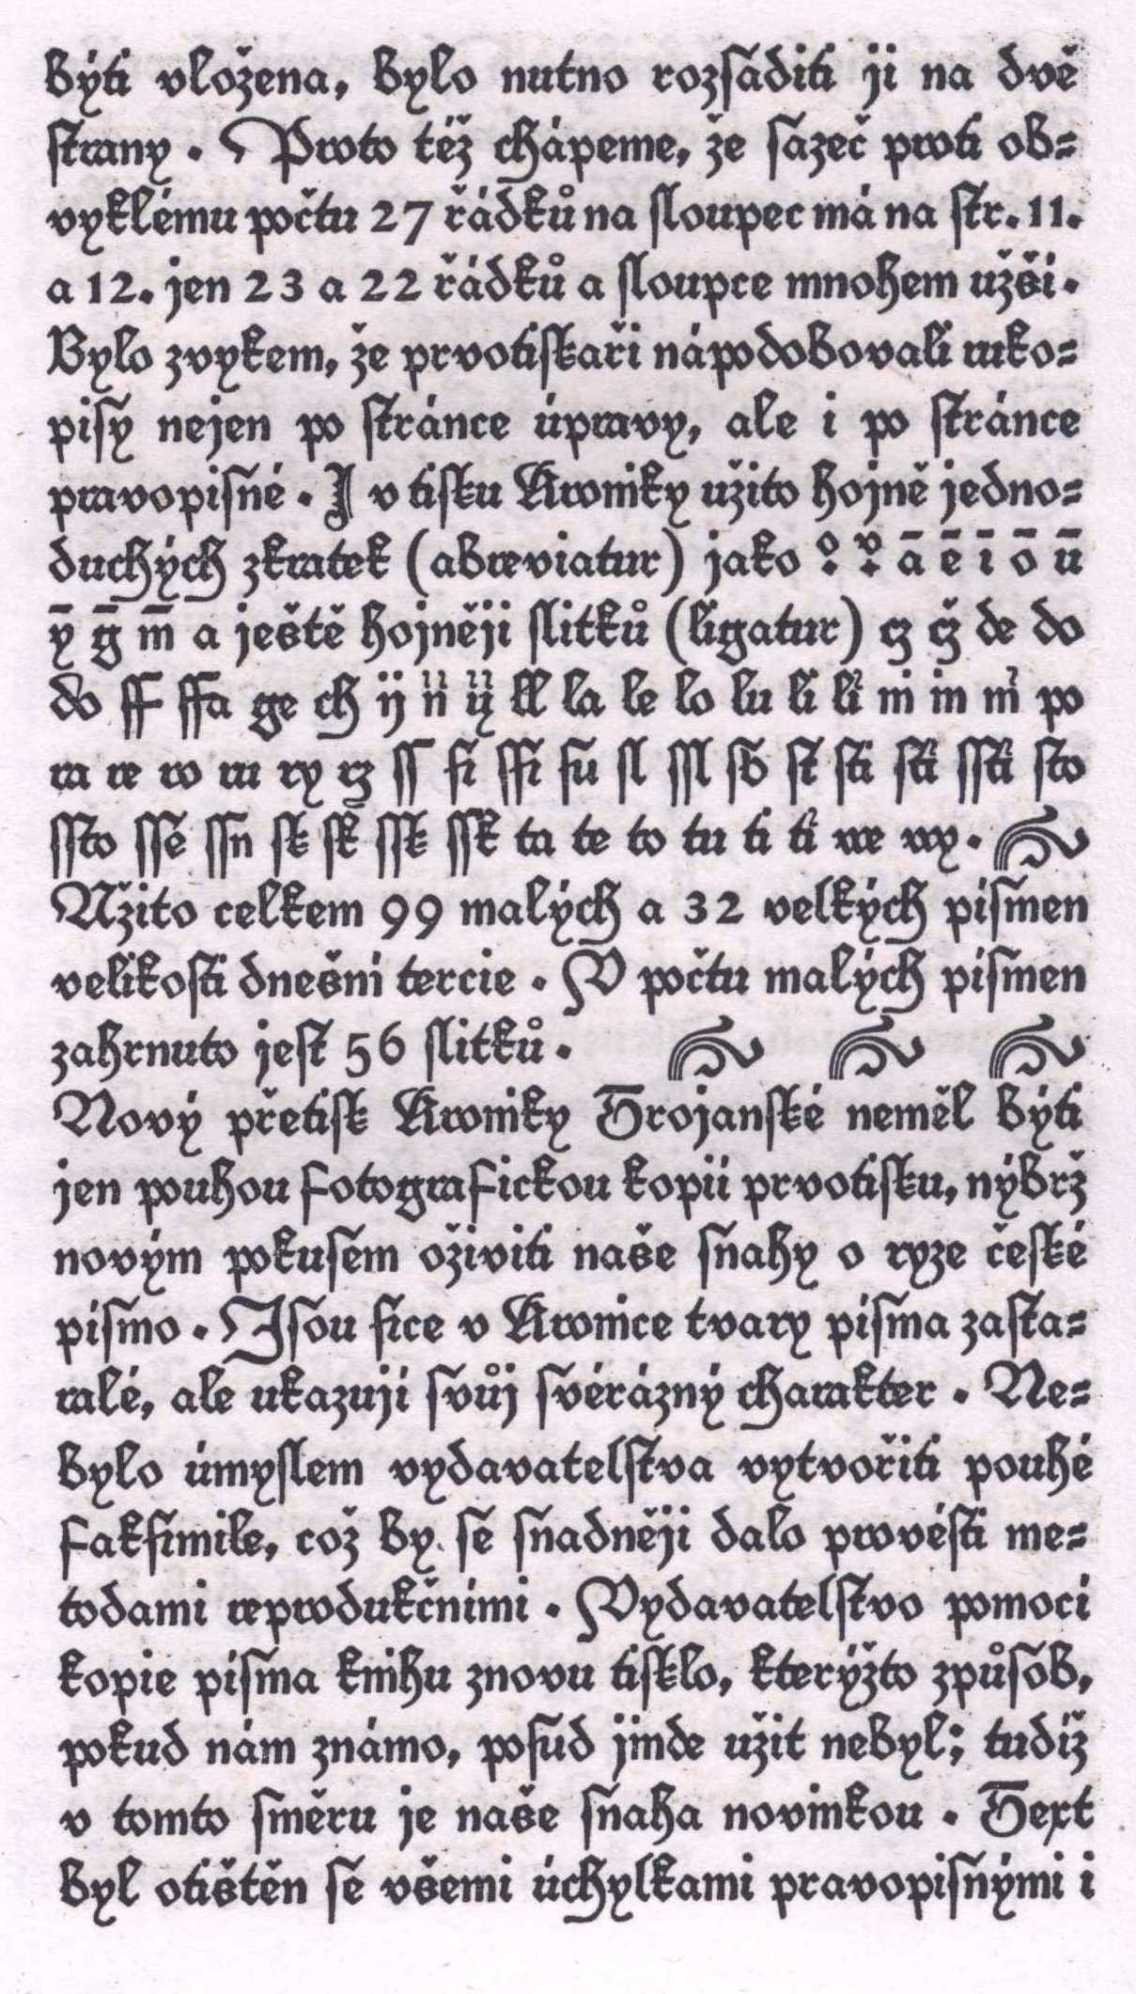 býti vložena, bylo nutno rozsaditi ji na dvě
strany. Proto též chápeme, že sazeč proti ob-
vyklému počtu 27 řádků na sloupec má na str. 11.
a 12. jen 23 a 22 řádků a sloupce mnohem užší.
Bylo zvykem, že prvotiskaři nápodobovali ruko-
pisy nejen po stránce úpravy, ale i po stránce
pravopisné. I v tisku Kroniky užito hojně jedno-
duchých zkratek (abreviatur) jako ā ē ī ō ū
ȳ ḡ m̄ a ještě hojněji slitků (ligatur) cz čz de do
do ff ffa ge ch ij ll la le lo lu li lí ni in ní po
ra re ro ru ry rz ſſ ſi ſſi ſu ſl ſſl ſb ſt ſti ſtí ſſtí ſto
ſſto ſſe ſſn ſk ſk ſſk ſſk ta te to tu ti tí we wy.
Užito celkem 99 malých a 32 velkých písmen
velikosti dnešní tercie. V počtu malých písmen
zahrnuto jest 56 slitků.
Nový přetisk Kroniky Trojanské neměl býti
jen pouhou fotografickou kopií prvotisku, nýbrž
novým pokusem oživiti naše snahy o ryze české
písmo. Jsou sice v Kronice tvary písma zasta-
ralé, ale ukazují svůj svérázný charakter. Ne-
bylo úmyslem vydavatelstva vytvořiti pouhé
faksimile, což by se snadněji dalo provésti me-
todami reprodukčními. Vydavatelstvo pomocí
kopie písma knihu znovu tisklo, kterýžto způsob,
pokud nám známo, posud jinde užit nebyl; tudíž
v tomto směru je naše snaha novinkou. Text
byl otištěn se všemi úchylkami pravopisnými i